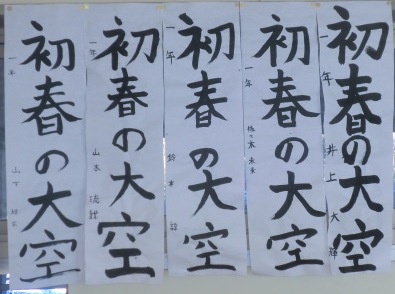 初春の大空
一年 井上 大輝
初春の大空
一年 佐々木 未来
初春の大空
一年 鈴木
初春の大空
一年 山本
初春の大空
一年 山下